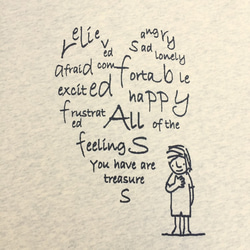 relieved angry
sad lonely
afraid comfortable
excited happy
frustrated All of the
feelings
You have are
treasures